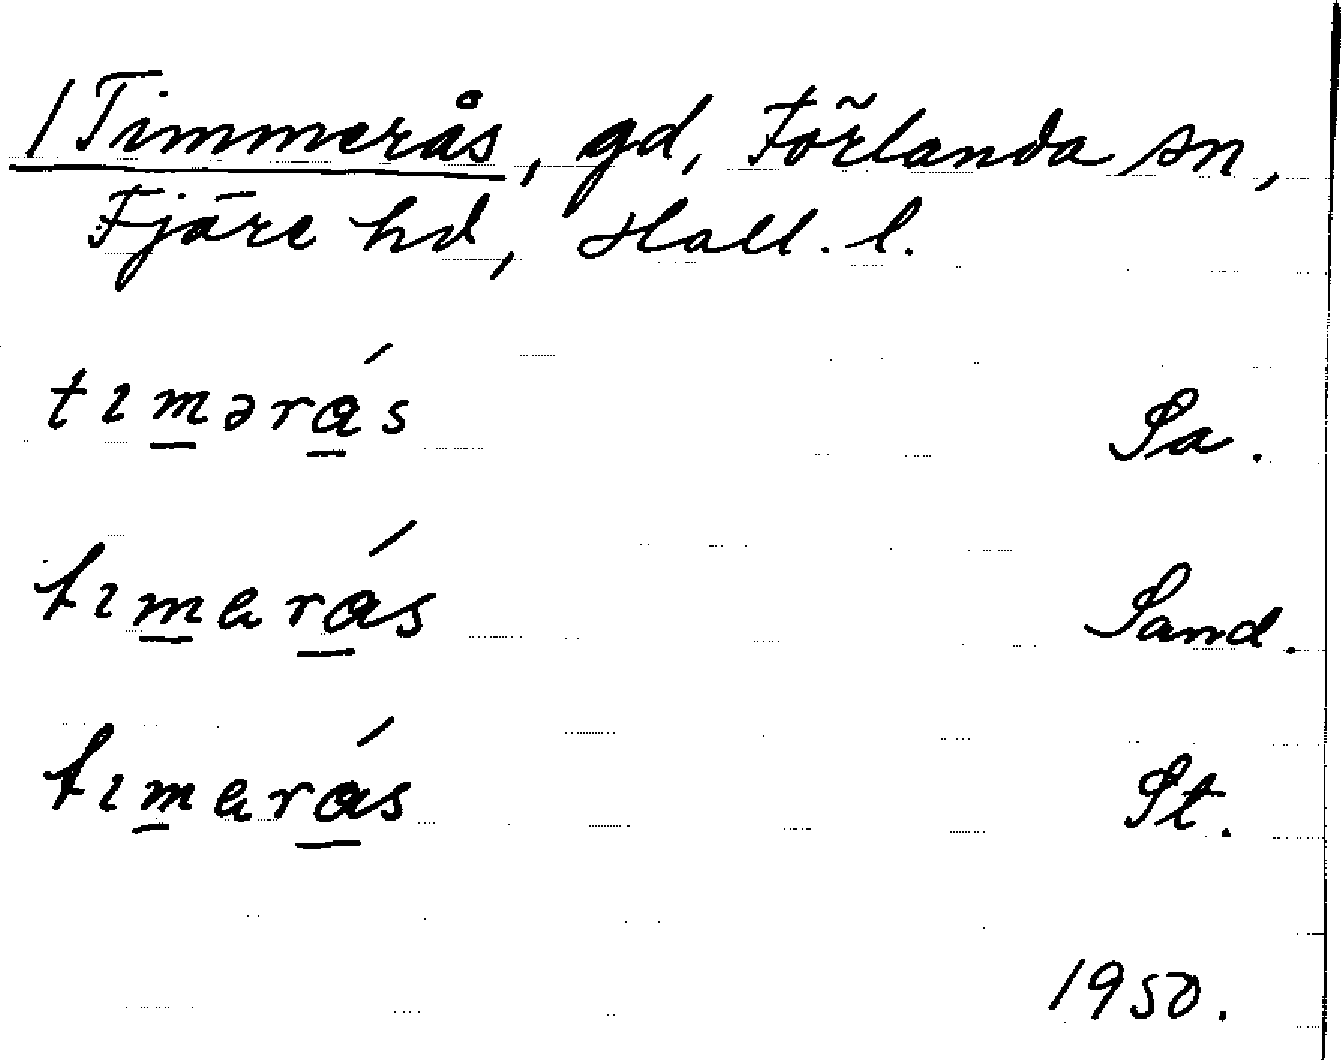 /Timmerås, gd, Förlanda sn,
Fjäre hd, Hall. l.
tɩmərás Sa.
tɩmerás Sand.
tɩmerás St.
1950.